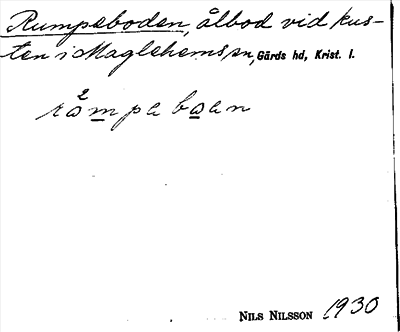 Rumpeboden, ålbod vid kus-
ten i Maglehems sn, Gärds hd, Krist. l.
2
råmpabaan
NILS NILSSON 1930